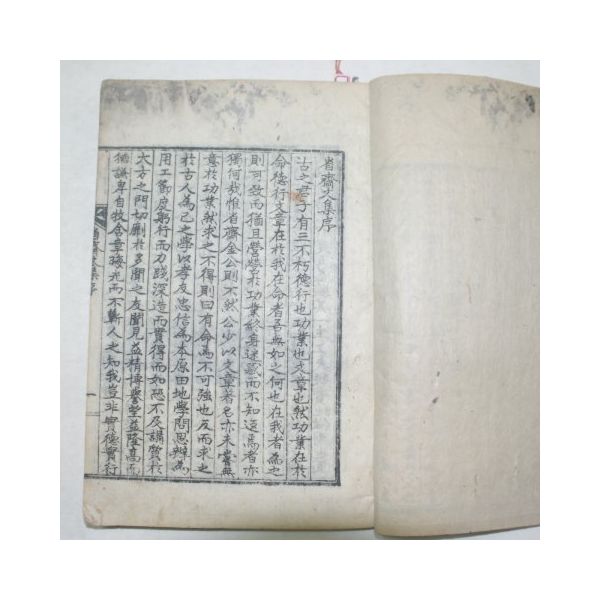 省齋文集序
古之君子有三不朽德行也功業也文章也然功業在於
命德行文章在於我在命者吾無如之何也在我者為之
則可致而猶且營營於功業終身迷惑而不知返焉者亦
獨何哉惟省齋金公則不然公少以文章著名亦未嘗無
意於功業然求之不得則曰有命焉不可強也反而求之
於古人為己之學以孝友忠信為本原田地學問思辨為
用工節度躬行而力踐深造而實得而如恐不及講質於
大方之門切劘於多聞之友聞見益精博譽望益隆高而
猶謙卑自牧含章晦光而不蘄人之知我豈非實德實行
省齋文集序
一